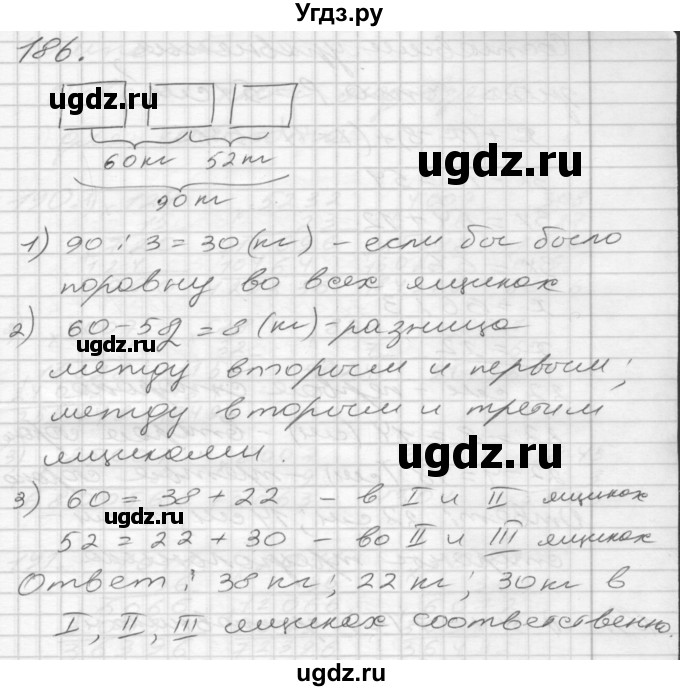 Угдз.ру
186.
ugdz.ru
ugdz.ru
60кг 52кг
90кг
1) 90 : 3 = 30 (кг) – если бы было
поровну во всех ящиках
2) 60 – 52 = 8 (кг) – разница
ugdz.ru
между вторым и первым;
между вторым и третим
ugdz.ru
ящиками.
3) 60 = 38 + 22 – в I и II ящиках
ugdz.ru
52 = 22 + 30 – во II и III ящиках
Ответ: 38 кг; 22 кг; 30кг в
I, II, III ящиках соответственно.
ugdz.ru